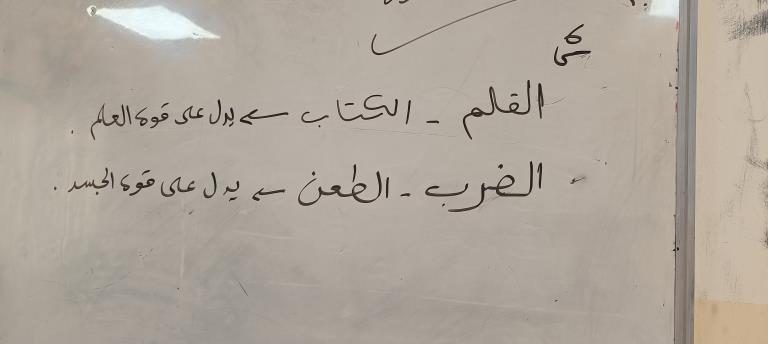 القلم - الكتاب ← يدل على قوة العلم .
الضرب - الطعن ← يدل على قوة الجسد .